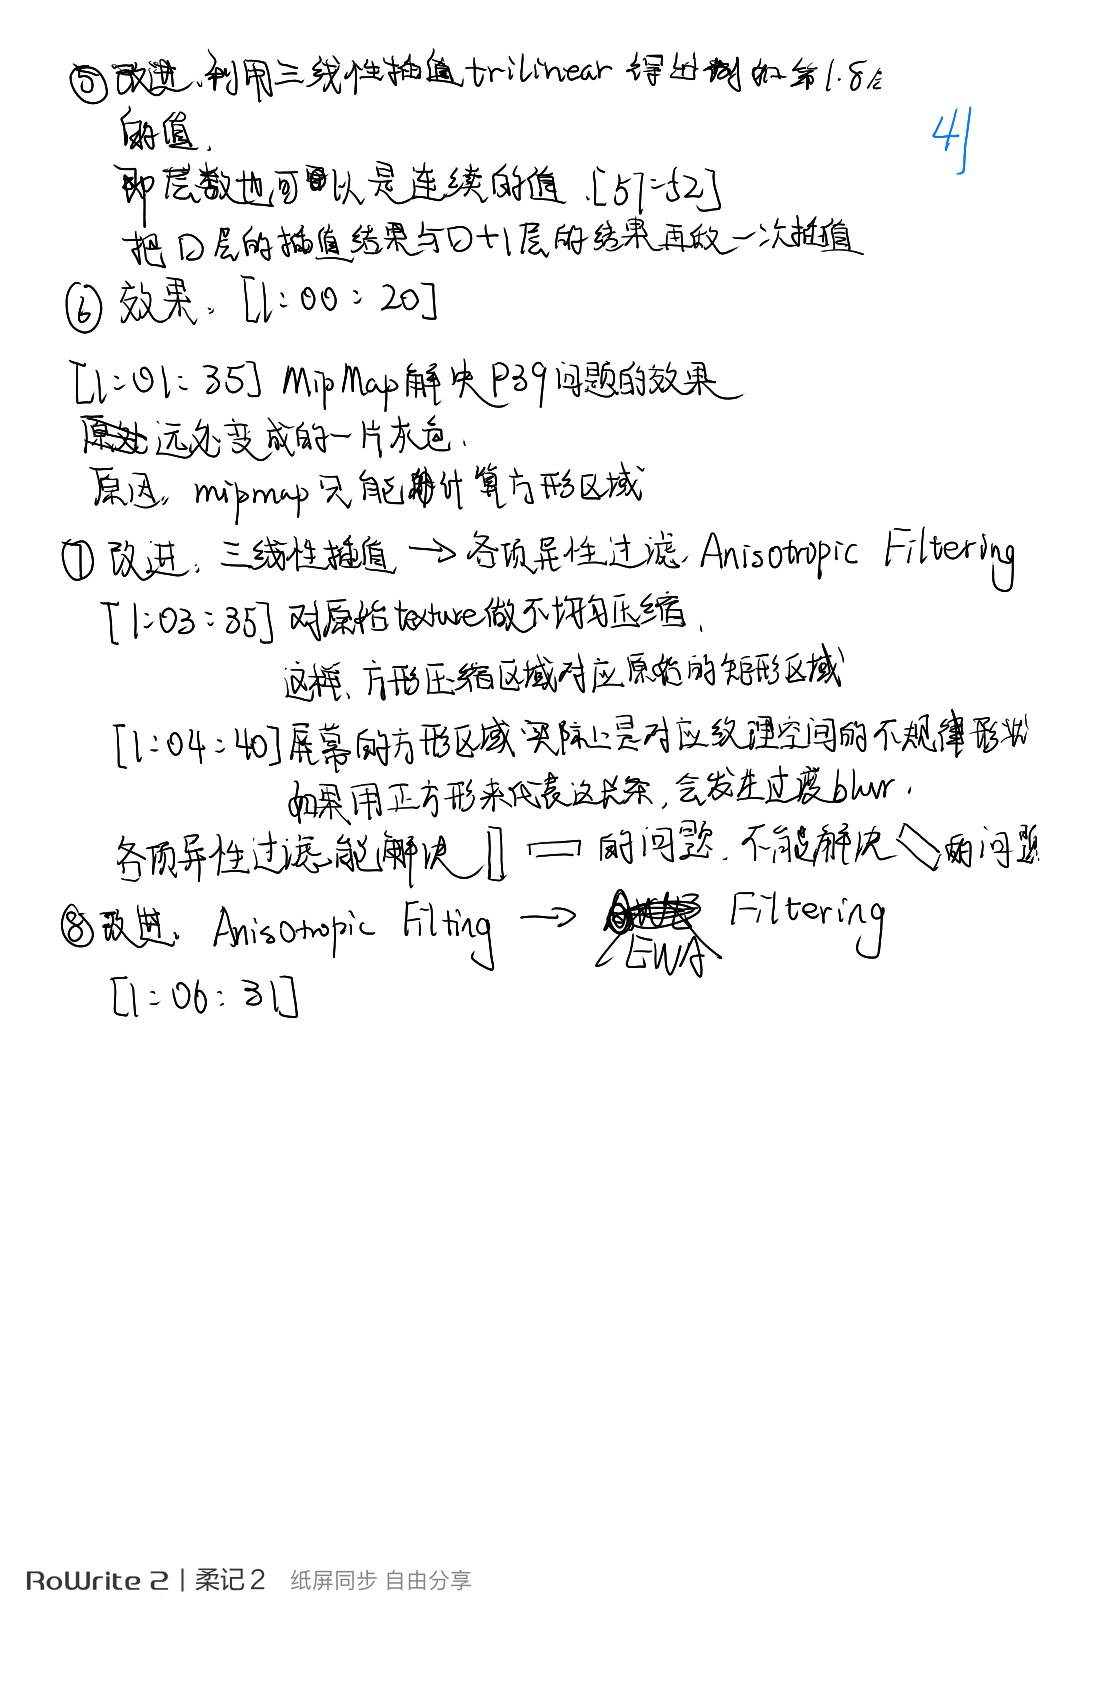 ⑤改进,利用三线性插值trilinear 得出例如第1.8层
的值.
41
即层数也可以是连续的值.[57:52]
把D层的插值结果与D+1层的结果再做一次插值
⑥ 效果. [1:00:20]
[1:01:35] MipMap解决P39问题的效果
远处变成的一片灰色.
原因. mipmap只能计算方形区域
⑦ 改进. 三线性插值 → 各项异性过滤. Anisotropic Filtering
[1:03:35] 对原始texture做不均匀压缩.
这样,方形压缩区域对应原始的矩形区域
[1:04:40]屏幕的方形区域实际上是对应纹理空间的不规律形状
如果用正方形来代表这长条,会发生过度blur.
各项异性过滤能解决 的问题.不能解决 的问题
⑧改进. Anisotropic Filting → EWA Filtering
[1:06:31]
RoWrite 2 | 柔记2 纸屏同步 自由分享